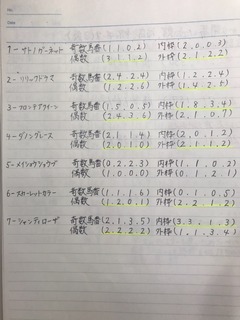 1-サトノガーネット 奇数馬番(1.1.0.2) 内枠(2.0.0.3)
偶数(3.1.1.2) 外枠(2.1.2.2)
2-リリックドラマ 奇数馬番(2.4.2.4) 内枠(1.2.2.4)
偶数(1.2.2.6) 外枠(1.4.2.5)
3-フロンテアクイーン 奇数馬番(1.5.0.5) 内枠(1.8.3.4)
偶数(2.4.3.6) 外枠(2.1.0.7)
4-ダノングレース 奇数馬番(2.1.1.4) 内枠(2.0.1.2)
偶数(2.0.1.0) 外枠(2.1.1.2)
5-メイショウショウブ 奇数馬番(0.2.2.3) 内枠(1.1.0.2)
偶数(1.0.0.0) 外枠(0.1.2.1)
6-スカーレットカラー 奇数馬番(1.1.1.6) 内枠(0.1.0.5)
偶数(1.2.0.1) 外枠(2.2.1.2)
7-シャンティローザ 奇数馬番(2.1.3.5) 内枠(3.3.1.3)
偶数(2.2.2.2) 外枠(1.1.3.4)